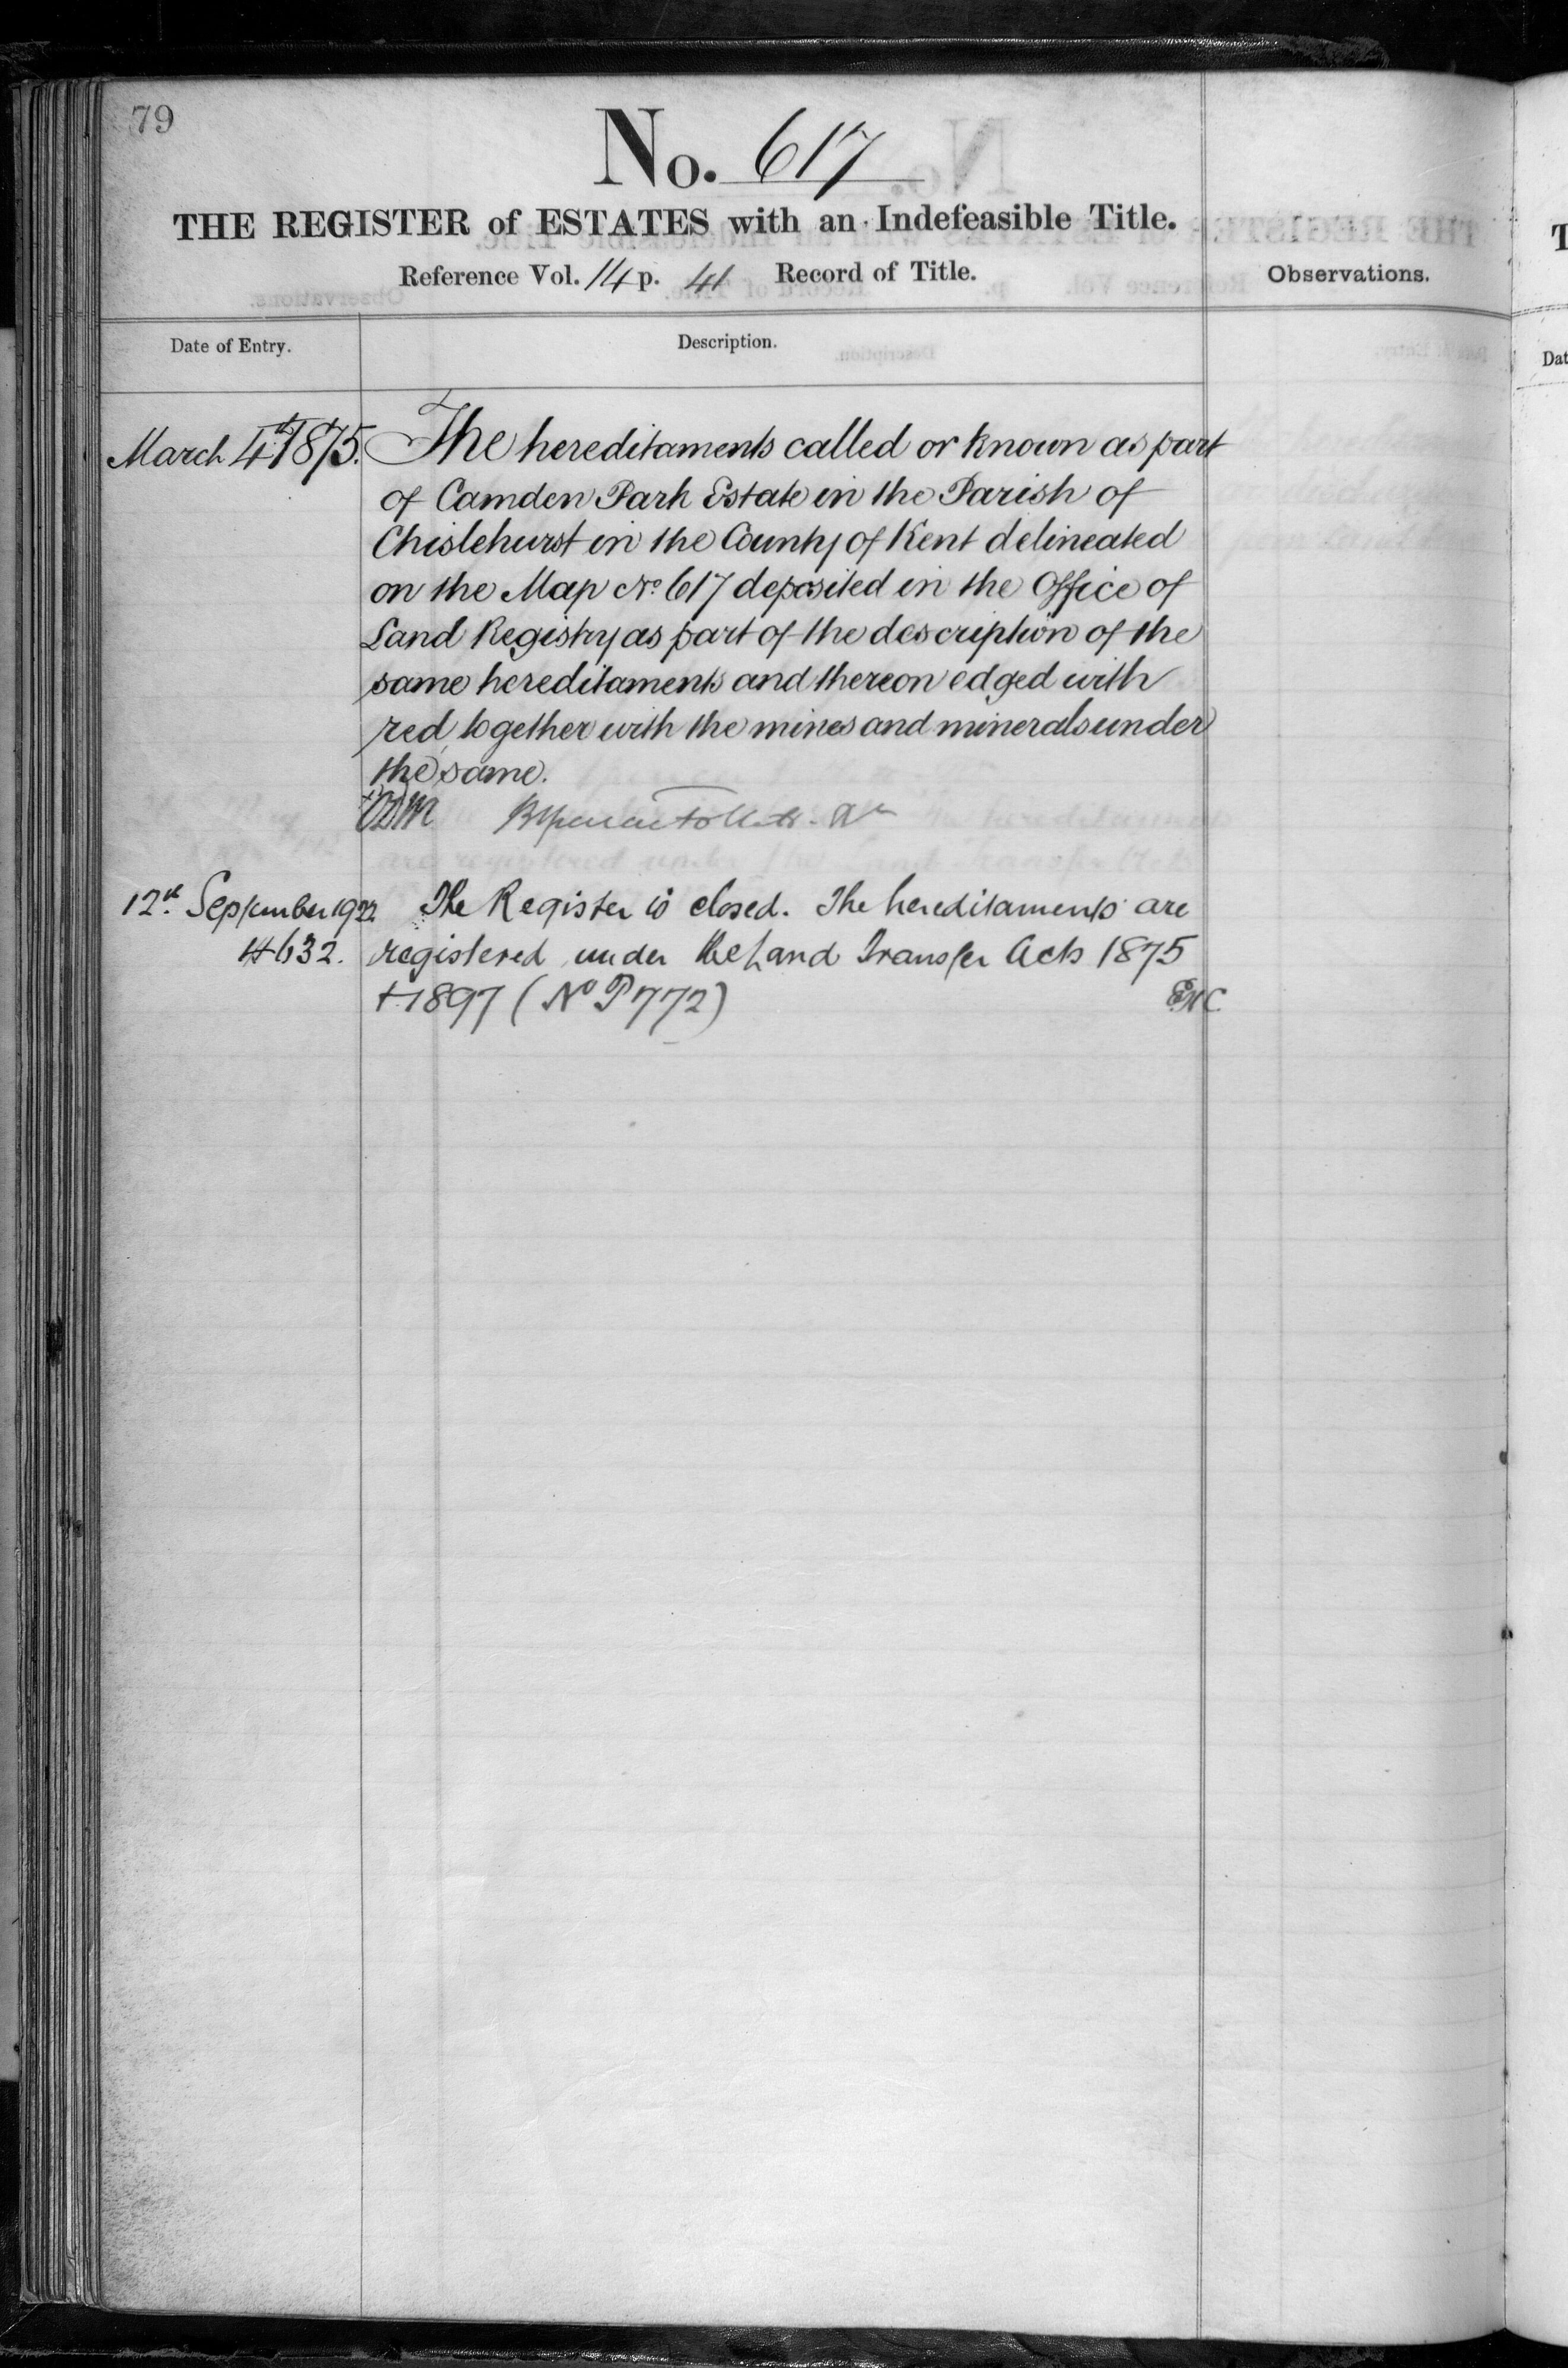 79
No. 617
THE REGISTER of ESTATES with an Indefeasible Title.
Reference Vol. 14 p. 41 Record of Title.
Observations.
Date of Entry.
Description.
March 4th 1875.
The hereditaments called or known as part
of Camden Park Estate in the Parish of
Chislehurst in the County of Kent delineated
on the Map No. 617 deposited in the Office of
Land Registry as part of the description of the
same hereditaments and thereon edged with
red, together with the mines and minerals under
the same.
12th September 1922
The Register is closed. The hereditaments are
registered under the Land Transfer Acts 1875
+ 1897 (No P772)